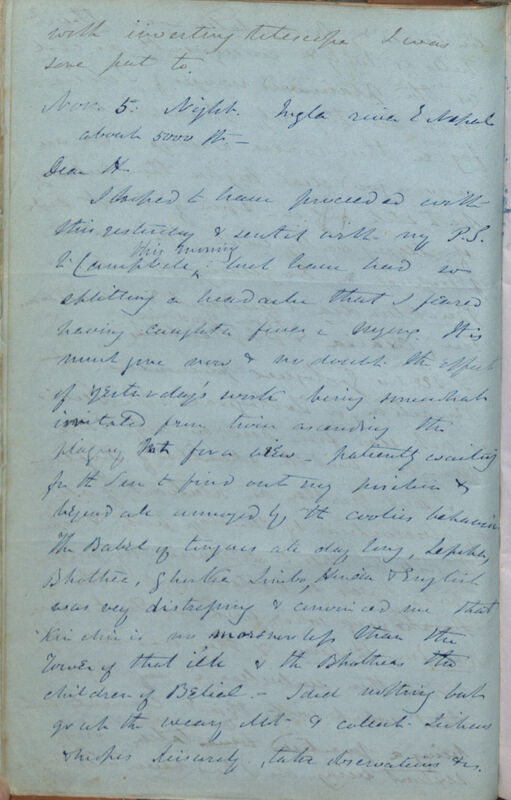 with inverting telescope I was
sore put to.
Nov. 5. Night. Ingla river E Nepal
about 5000 ft —
Dear H
I hoped to have proceeded with
this yesterday & sent it with my P.S.
to Campbell this morning; but have had so
splitting a headache that I feared
having caught a fever. It is
much gone now & no doubt the effect
of yesterday's work being somewhat
irritated from twice ascending the
plaguy Mt for a view — patiently waiting
for the Sun to find out my position &
beyond all annoyed by the coolies behavior
The Babel of tongues all day long, Lepcha,
Bhothea, Ghorka Limbo, Hindu & English
was very distressing & convinced me that
Kinchin is no more nor less than the
Tower of that ilk & the Bhotheas the
children of Belial. — I did nothing but
go up the weary Mt — & collect Lichens
& mopes sincerely, take observations &c.